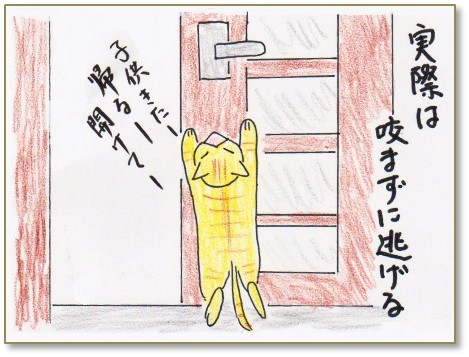 実際は
咬まずに逃げる
子供きたーー
帰るーー
開けてー